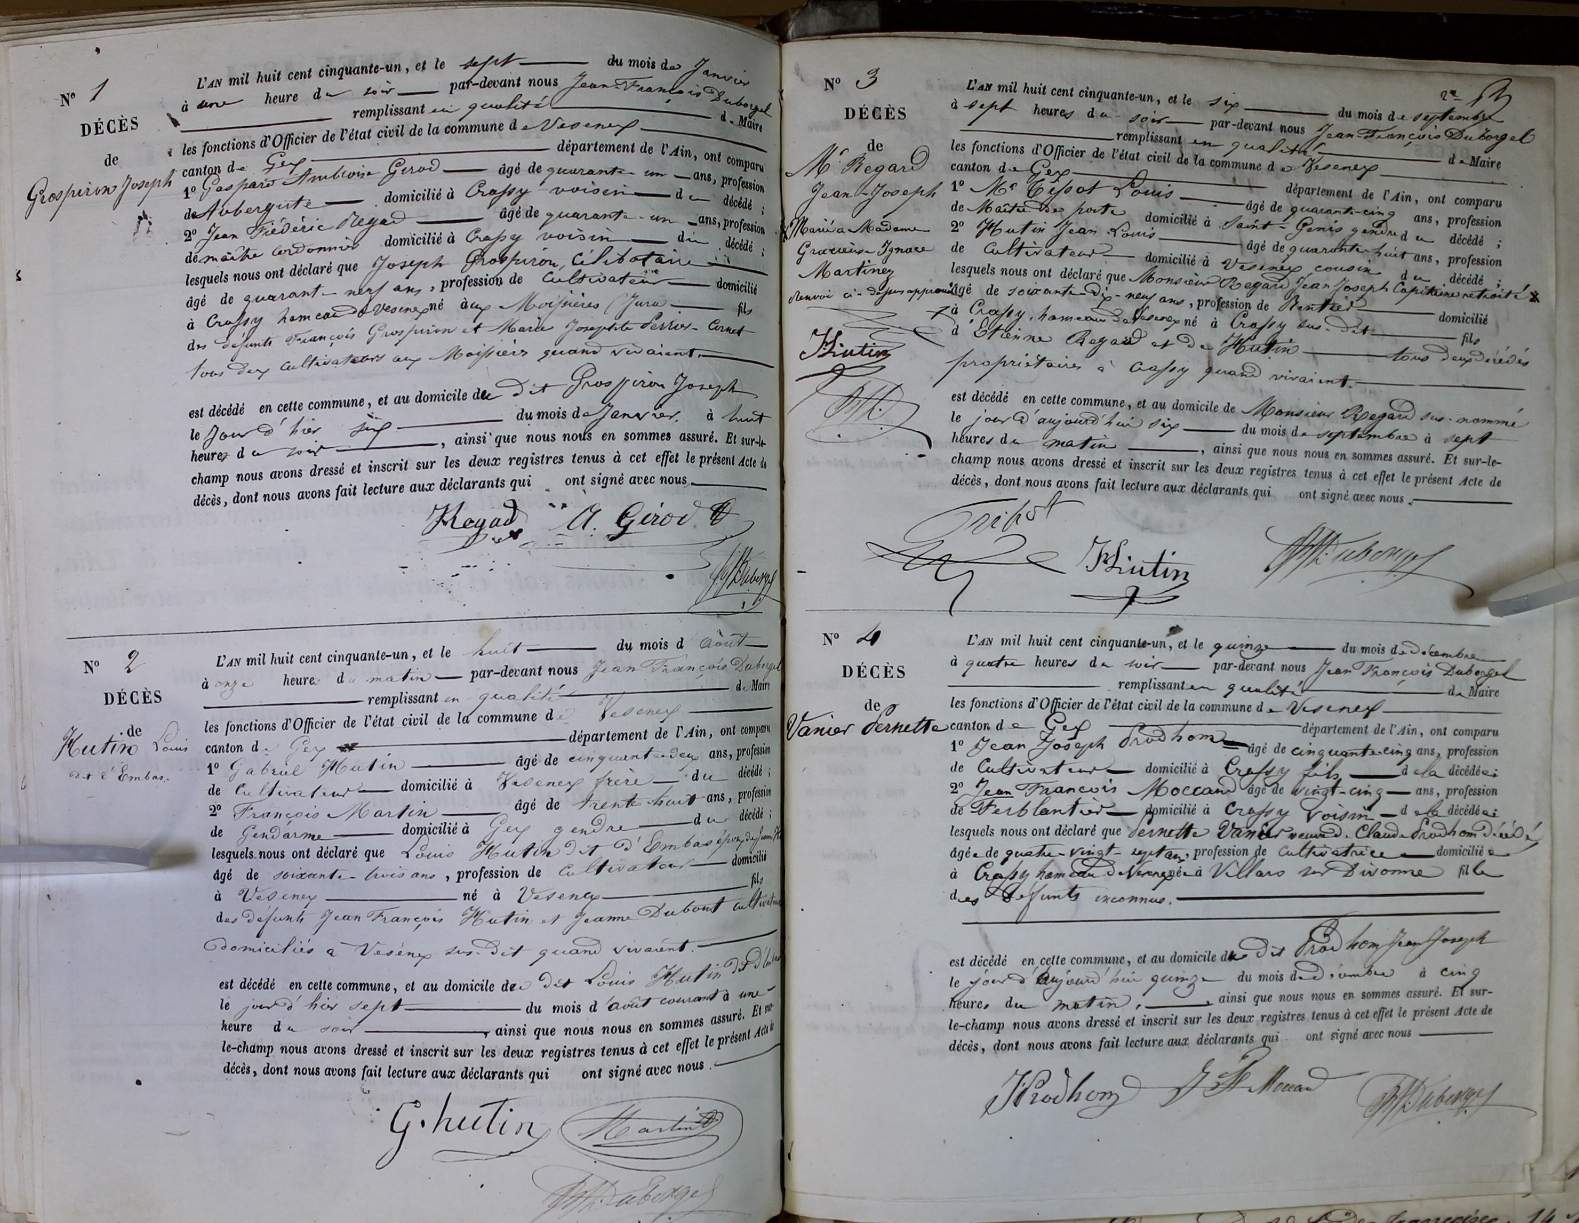 N° 1
DÉCÈS
de
Grospiron Joseph
L'AN mil huit cent cinquante-un, et le sept du mois de Janvier
à une heure du soir par-devant nous Jean-François Duborgel
remplissant en qualité de Maire
les fonctions d'Officier de l'état civil de la commune de Vesenex
canton de Gex département de l'Ain, ont comparu
1° Gaspard Ambroise Girod âgé de quarante-un ans, profession
de Aubergiste domicilié à Crassy voisin du décédé ;
2° Jean Frédéric Regad âgé de quarante-un ans, profession
de maître cordonnier domicilié à Crassy voisin du décédé ;
lesquels nous ont déclaré que Joseph Grospiron, Célibataire
âgé de quarante-neuf ans, profession de Cultivateur domicilié
à Crassy hameau de Vesenex né aux Moissières (Jura) fils
des défunts François Grospiron et Marie Josephte Perrier-Cornet
tous deux cultivateurs aux Moissières quand vivaient.
est décédé en cette commune, et au domicile du dit Grospiron Joseph
le Jour d'hier six du mois de Janvier, à huit
heures du soir, ainsi que nous nous en sommes assuré. Et sur-le-
champ nous avons dressé et inscrit sur les deux registres tenus à cet effet le présent Acte de
décès, dont nous avons fait lecture aux déclarants qui ont signé avec nous.
Regad A. Girod
Duborgel
N° 2
DÉCÈS
de
Hutin Louis
dit d'Embas.
L'AN mil huit cent cinquante-un, et le huit du mois d'Août
à onze heures du matin par-devant nous Jean François Duborgel
remplissant en qualité de Maire
les fonctions d'Officier de l'état civil de la commune de Vesenex
canton de Gex département de l'Ain, ont comparu
1° Gabriel Hutin âgé de cinquante-deux ans, profession
de Cultivateur domicilié à Vesenex frère du décédé ;
2° François Martin âgé de trente-huit ans, profession
de Gendarme domicilié à Gex gendre du décédé ;
lesquels nous ont déclaré que Louis Hutin dit d'Embas époux de
âgé de soixante-trois ans, profession de cultivateur domicilié
à Vesenex né à Vesenex fils
des défunts Jean François Hutin et Jeanne Dubout cultivateurs
domiciliés à Vesénex sus-dit quand vivaient.
est décédé en cette commune, et au domicile du dit Louis Hutin dit d'Embas
le jour d'hier sept du mois d'août courant à une
heure du soir, ainsi que nous nous en sommes assuré. Et sur-
le-champ nous avons dressé et inscrit sur les deux registres tenus à cet effet le présent Acte de
décès, dont nous avons fait lecture aux déclarants qui ont signé avec nous.
G. hutin Martin
Duborgel
N° 3
DÉCÈS
de
Mr Regard
Jean-Joseph
Marié à Madame
Gracieuse Ignace
Martinez
Renvoi ci-dessus approuvé
Hutin
L'AN mil huit cent cinquante-un, et le six du mois de septembre
à sept heures du soir par-devant nous Jean François Duborgel
remplissant en qualité de Maire
les fonctions d'Officier de l'état civil de la commune de Vesenex
canton de Gex département de l'Ain, ont comparu
1° Mr Tissot Louis âgé de quarante-cinq ans, profession
de Maître de poste domicilié à Saint-Genis gendre du décédé ;
2° Hutin Jean Louis âgé de quarante-huit ans, profession
de Cultivateur domicilié à Vesenex cousin du décédé ;
lesquels nous ont déclaré que Monsieur Regard Jean Joseph Capitaine retraité
âgé de soixante-dix-neuf ans, profession de Rentier domicilié
à Crassy, hameau de Vesenex né à Crassy sus-dit fils
d'Etienne Regard et de Hutin tous deux décédés
propriétaires à Crassy quand vivaient.
est décédé en cette commune, et au domicile de Monsieur Regard sus-nommé
le jour d'aujourd'hui six du mois de septembre à sept
heures du matin, ainsi que nous nous en sommes assuré. Et sur-le-
champ nous avons dressé et inscrit sur les deux registres tenus à cet effet le présent Acte de
décès, dont nous avons fait lecture aux déclarants qui ont signé avec nous.
Hutin Duborgel
N° 4
DÉCÈS
de
Vanier Pernette
L'AN mil huit cent cinquante-un, et le quinze du mois de décembre
à quatre heures du soir par-devant nous Jean François Duborgel
remplissant en qualité de Maire
les fonctions d'Officier de l'état civil de la commune de Vesenex
canton de Gex département de l'Ain, ont comparu
1° Jean Joseph Prodhom âgé de cinquante-cinq ans, profession
de Cultivateur domicilié à Crassy fils de la décédée ;
2° Jean François Moccand âgé de vingt-cinq ans, profession
de Ferblantier domicilié à Crassy voisin de la décédée ;
lesquels nous ont déclaré que Pernette Vanier veuve d. Claude Prodhom décédé
âgée de quatre-vingt-sept ans, profession de Cultivatrice domiciliée
à Crassy hameau de Vesenex née à Villars sur Divonne fille
des défunts inconnus.
est décédé en cette commune, et au domicile du dit Prodhom Jean Joseph
le jour d'aujourd'hui quinze du mois de décembre à cinq
heures du matin, ainsi que nous nous en sommes assuré. Et sur-
le-champ nous avons dressé et inscrit sur les deux registres tenus à cet effet le présent Acte de
décès, dont nous avons fait lecture aux déclarants qui ont signé avec nous
Prodhom J F Moccand Duborgel